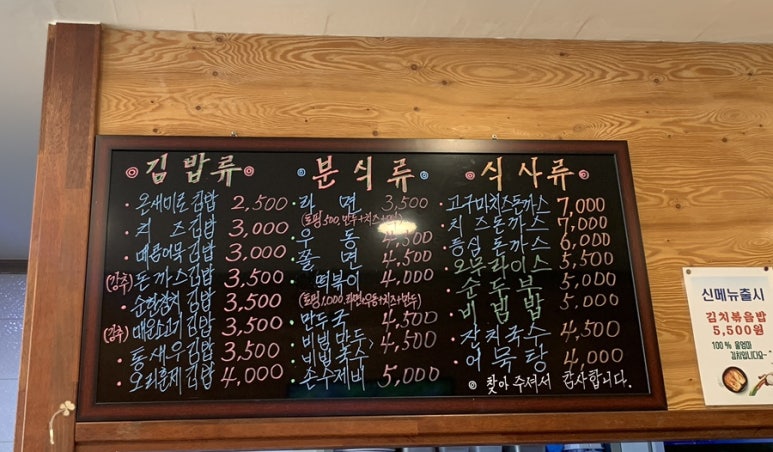 김밥류
온새미로김밥 2,500
치즈김밥 3,000
매콤어묵김밥 3,000
(강추) 돈까스김밥 3,500
순한참치김밥 3,500
(강추) 매운소고기김밥 3,500
통새우김밥 3,500
오리훈제김밥 4,000
분식류
라면 3,500
우동 4,500
쫄면 4,500
떡볶이 4,000
(토핑 1,000, 라면or우동+치즈+만두)
만두국 4,500
비빔만두 4,500
비빔국수
손수제비 5,000
식사류
고구마치즈돈까스 7,000
치즈돈까스 7,000
등심돈까스 6,000
오무라이스 5,500
순두부 5,000
비빔밥 5,000
잔치국수 4,500
어묵탕 4,000
찾아 주셔서 감사합니다.
신메뉴출시
김치볶음밥
5,500원
100%
김치입니다요~